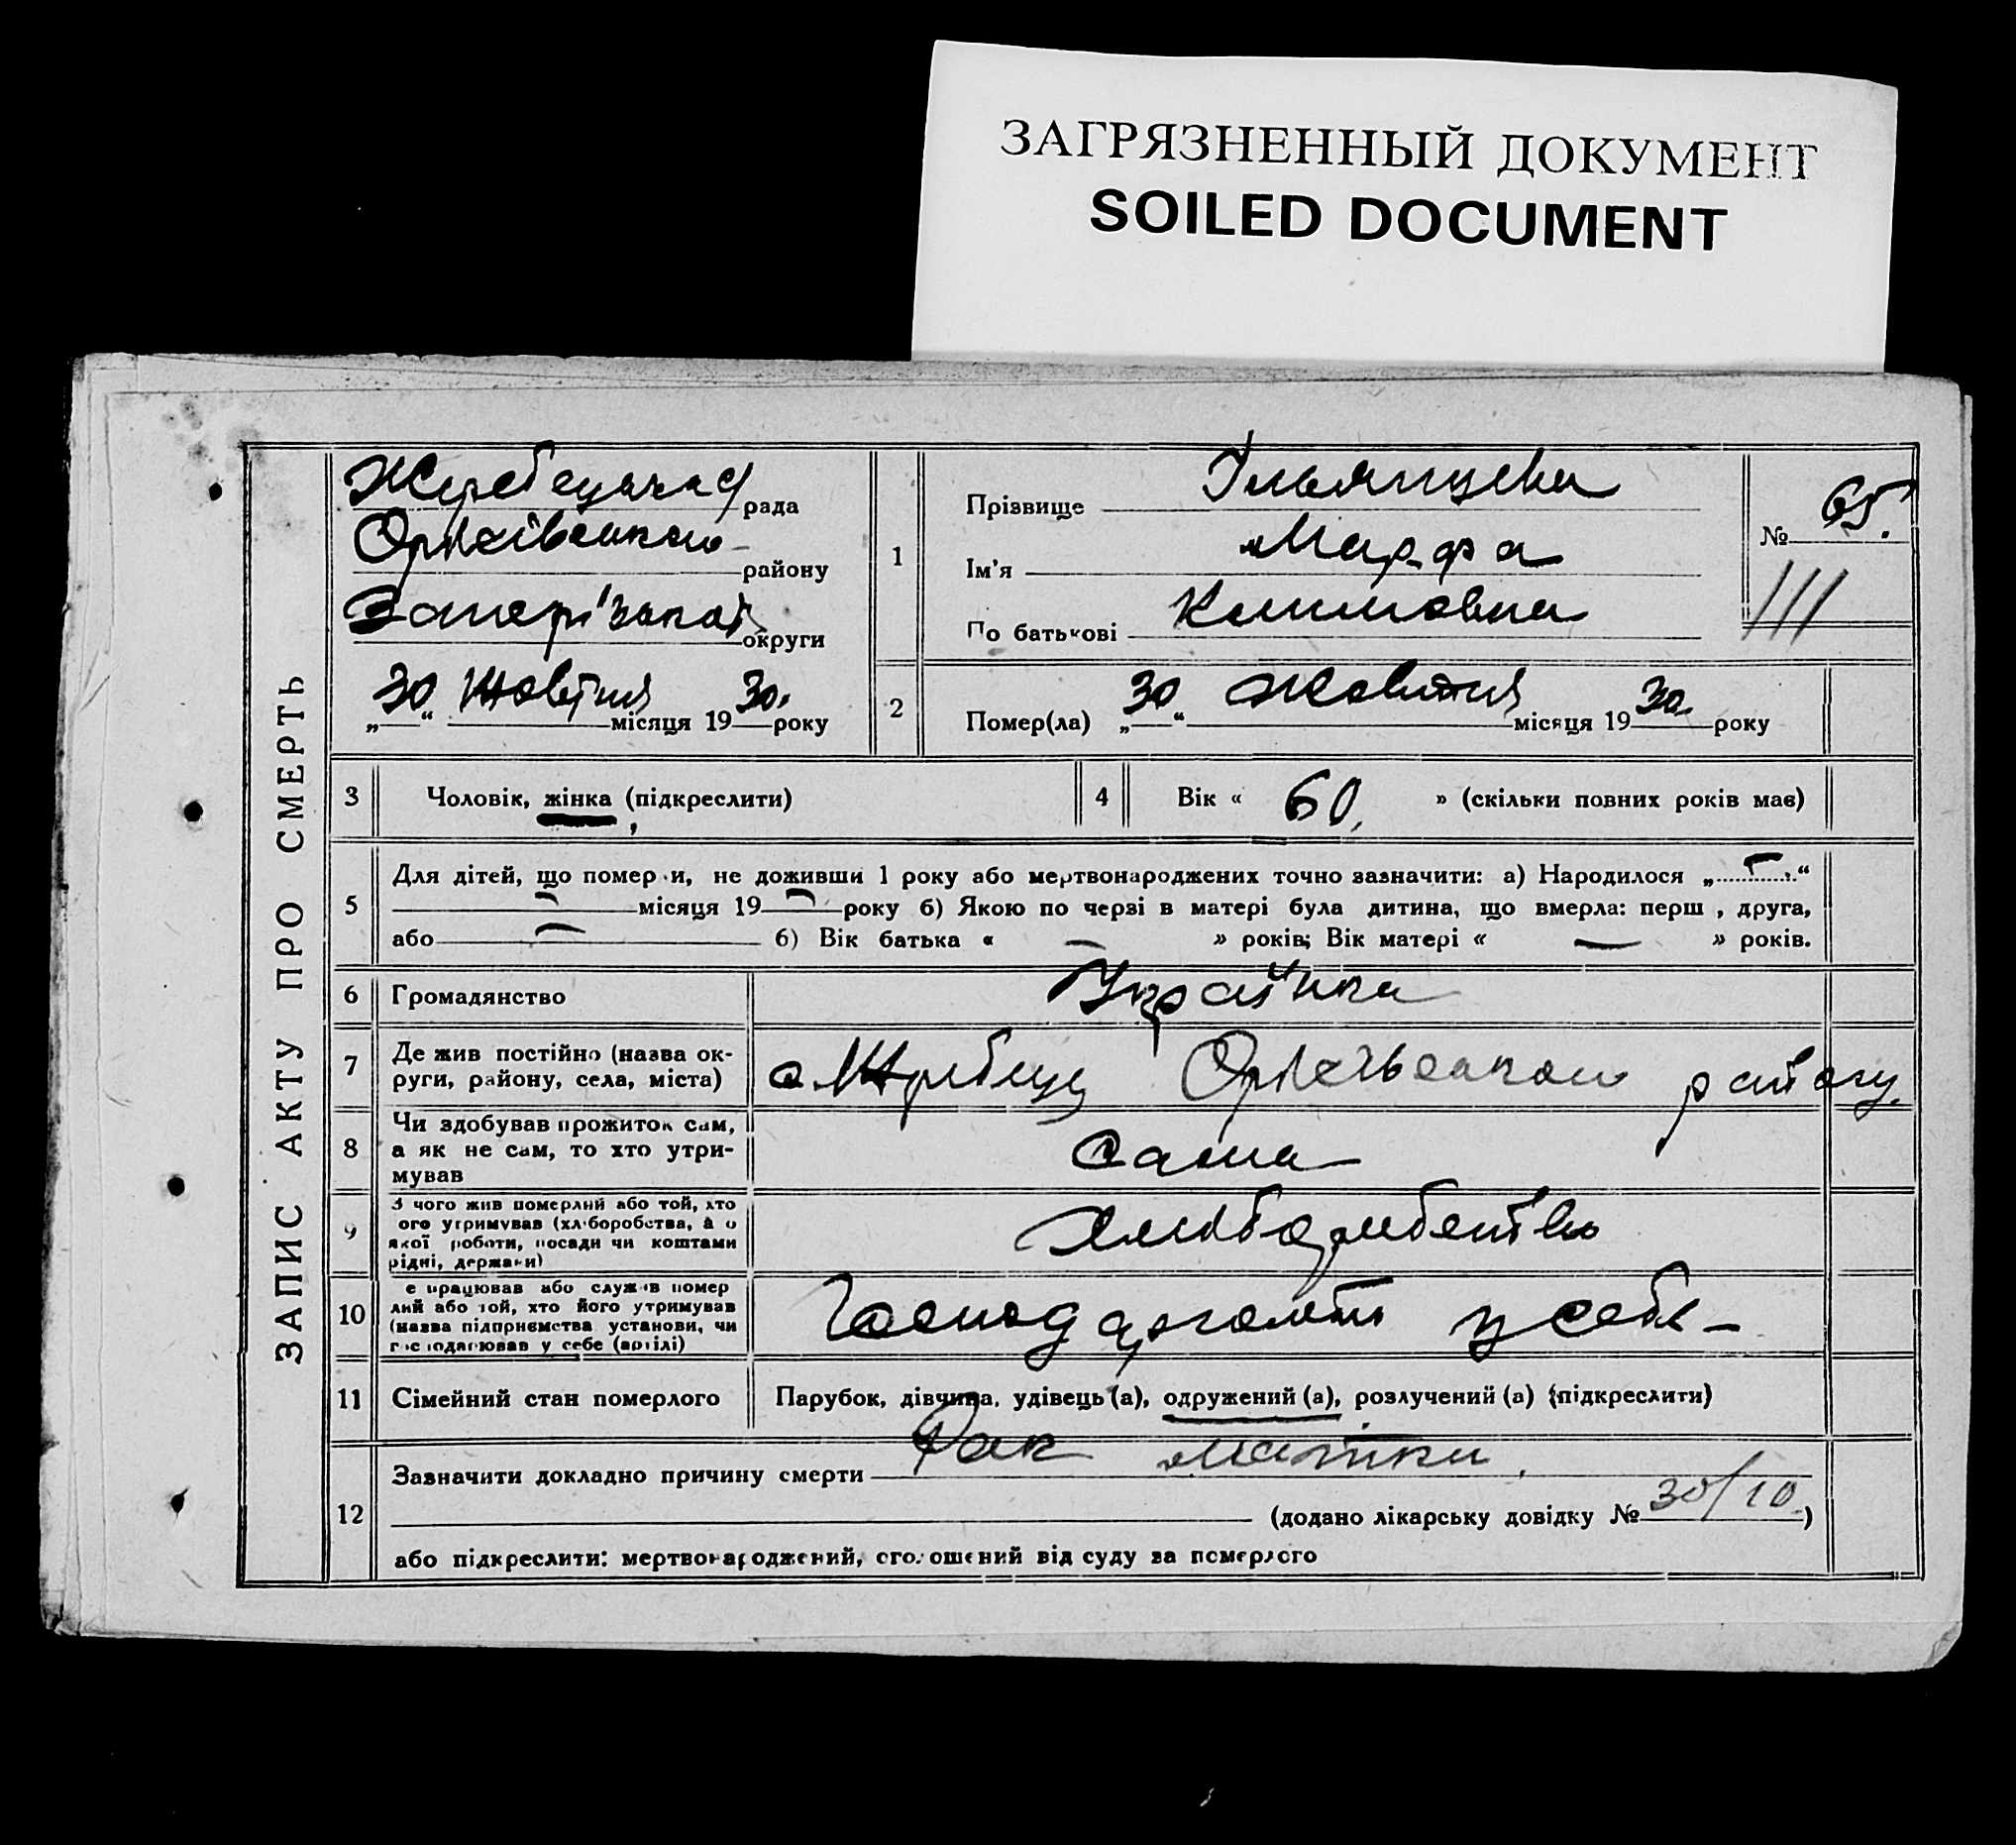 ЗАГРЯЗНЕННЫЙ ДОКУМЕНТ
SOILED DOCUMENT
ЗАПИС АКТУ ПРО СМЕРТЬ
Жеребецька рада
району
округи
„30“ Жовтня місяця 1930. року
1
Прізвище
Ім'я Марфа
По батькові Климовна
№ 65.
2
Помер(ла) „30“ Жовтня місяця 1930. року
3 Чоловік, жінка (підкреслити)
4 Вік « 60 » (скільки повних років має)
5
Для дітей, що померли, не доживши 1 року або мертвонароджених точно зазначити: а) Народилося „ “
місяця 19 року б) Якою по черзі в матері була дитина, що вмерла: перш , друга,
або б) Вік батька « — » років; Вік матері « — » років.
6 Громадянство Українка
7 Де жив постійно (назва ок-
руги, району, села, міста) с. Жеребець Оріхівського району.
8 Чи здобував прожиток сам,
а як не сам, то хто утри-
мував Сама
9 З чого жив померлий або той, хто
ого утримував (хліборобства, а о
якої роботи, посади чи коштами
рідні, держави)
10 е працював або служив помер
лий або той, хто його утримував
(назва підприємства установи, чи
господарював у себе (артілі) у себе –
11 Сімейний стан померлого Парубок, дівчина, удівець (а), одружений (а), розлучений (а) (підкреслити)
12
Зазначити докладно причину смерти Рак матки.
(додано лікарську довідку № 30/10 )
або підкреслити: мертвонароджений, оголошений від суду за померлого